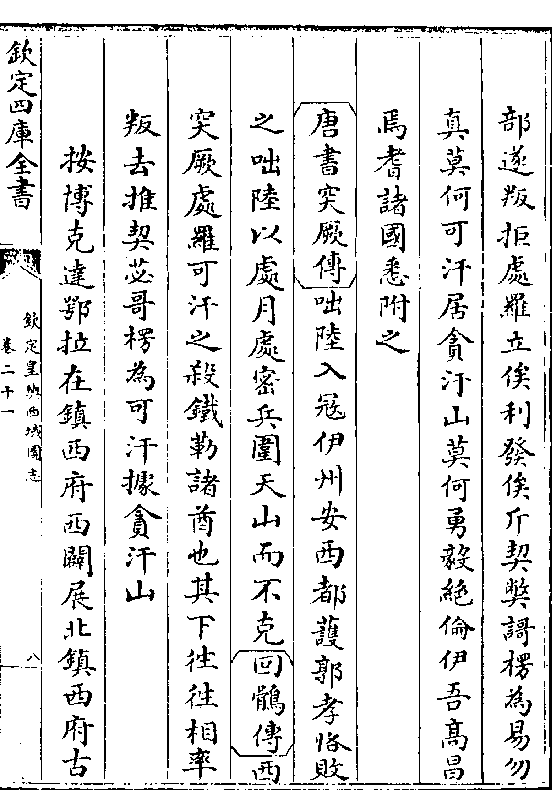 部遂叛拒處羅立俟利發俟斤契獘謌楞為易勿
真莫何可汗居貪汗山莫何勇毅絕倫伊吾髙昌
焉耆諸國悉附之
唐書突厥傳咄陸入冦伊州安西都䕶郭孝恪敗
之咄陸以處月處密兵圍天山而不克回鶻傳西
突厥處羅可汗之殺鐵勒諸酋也其下徃徃相率
叛去推契苾哥楞為可汗據貪汗山
按博克達鄂拉在鎮西府西闢展北鎮西府古
欽定四庫全書
欽定皇輿西域圖志
卷二十一
八